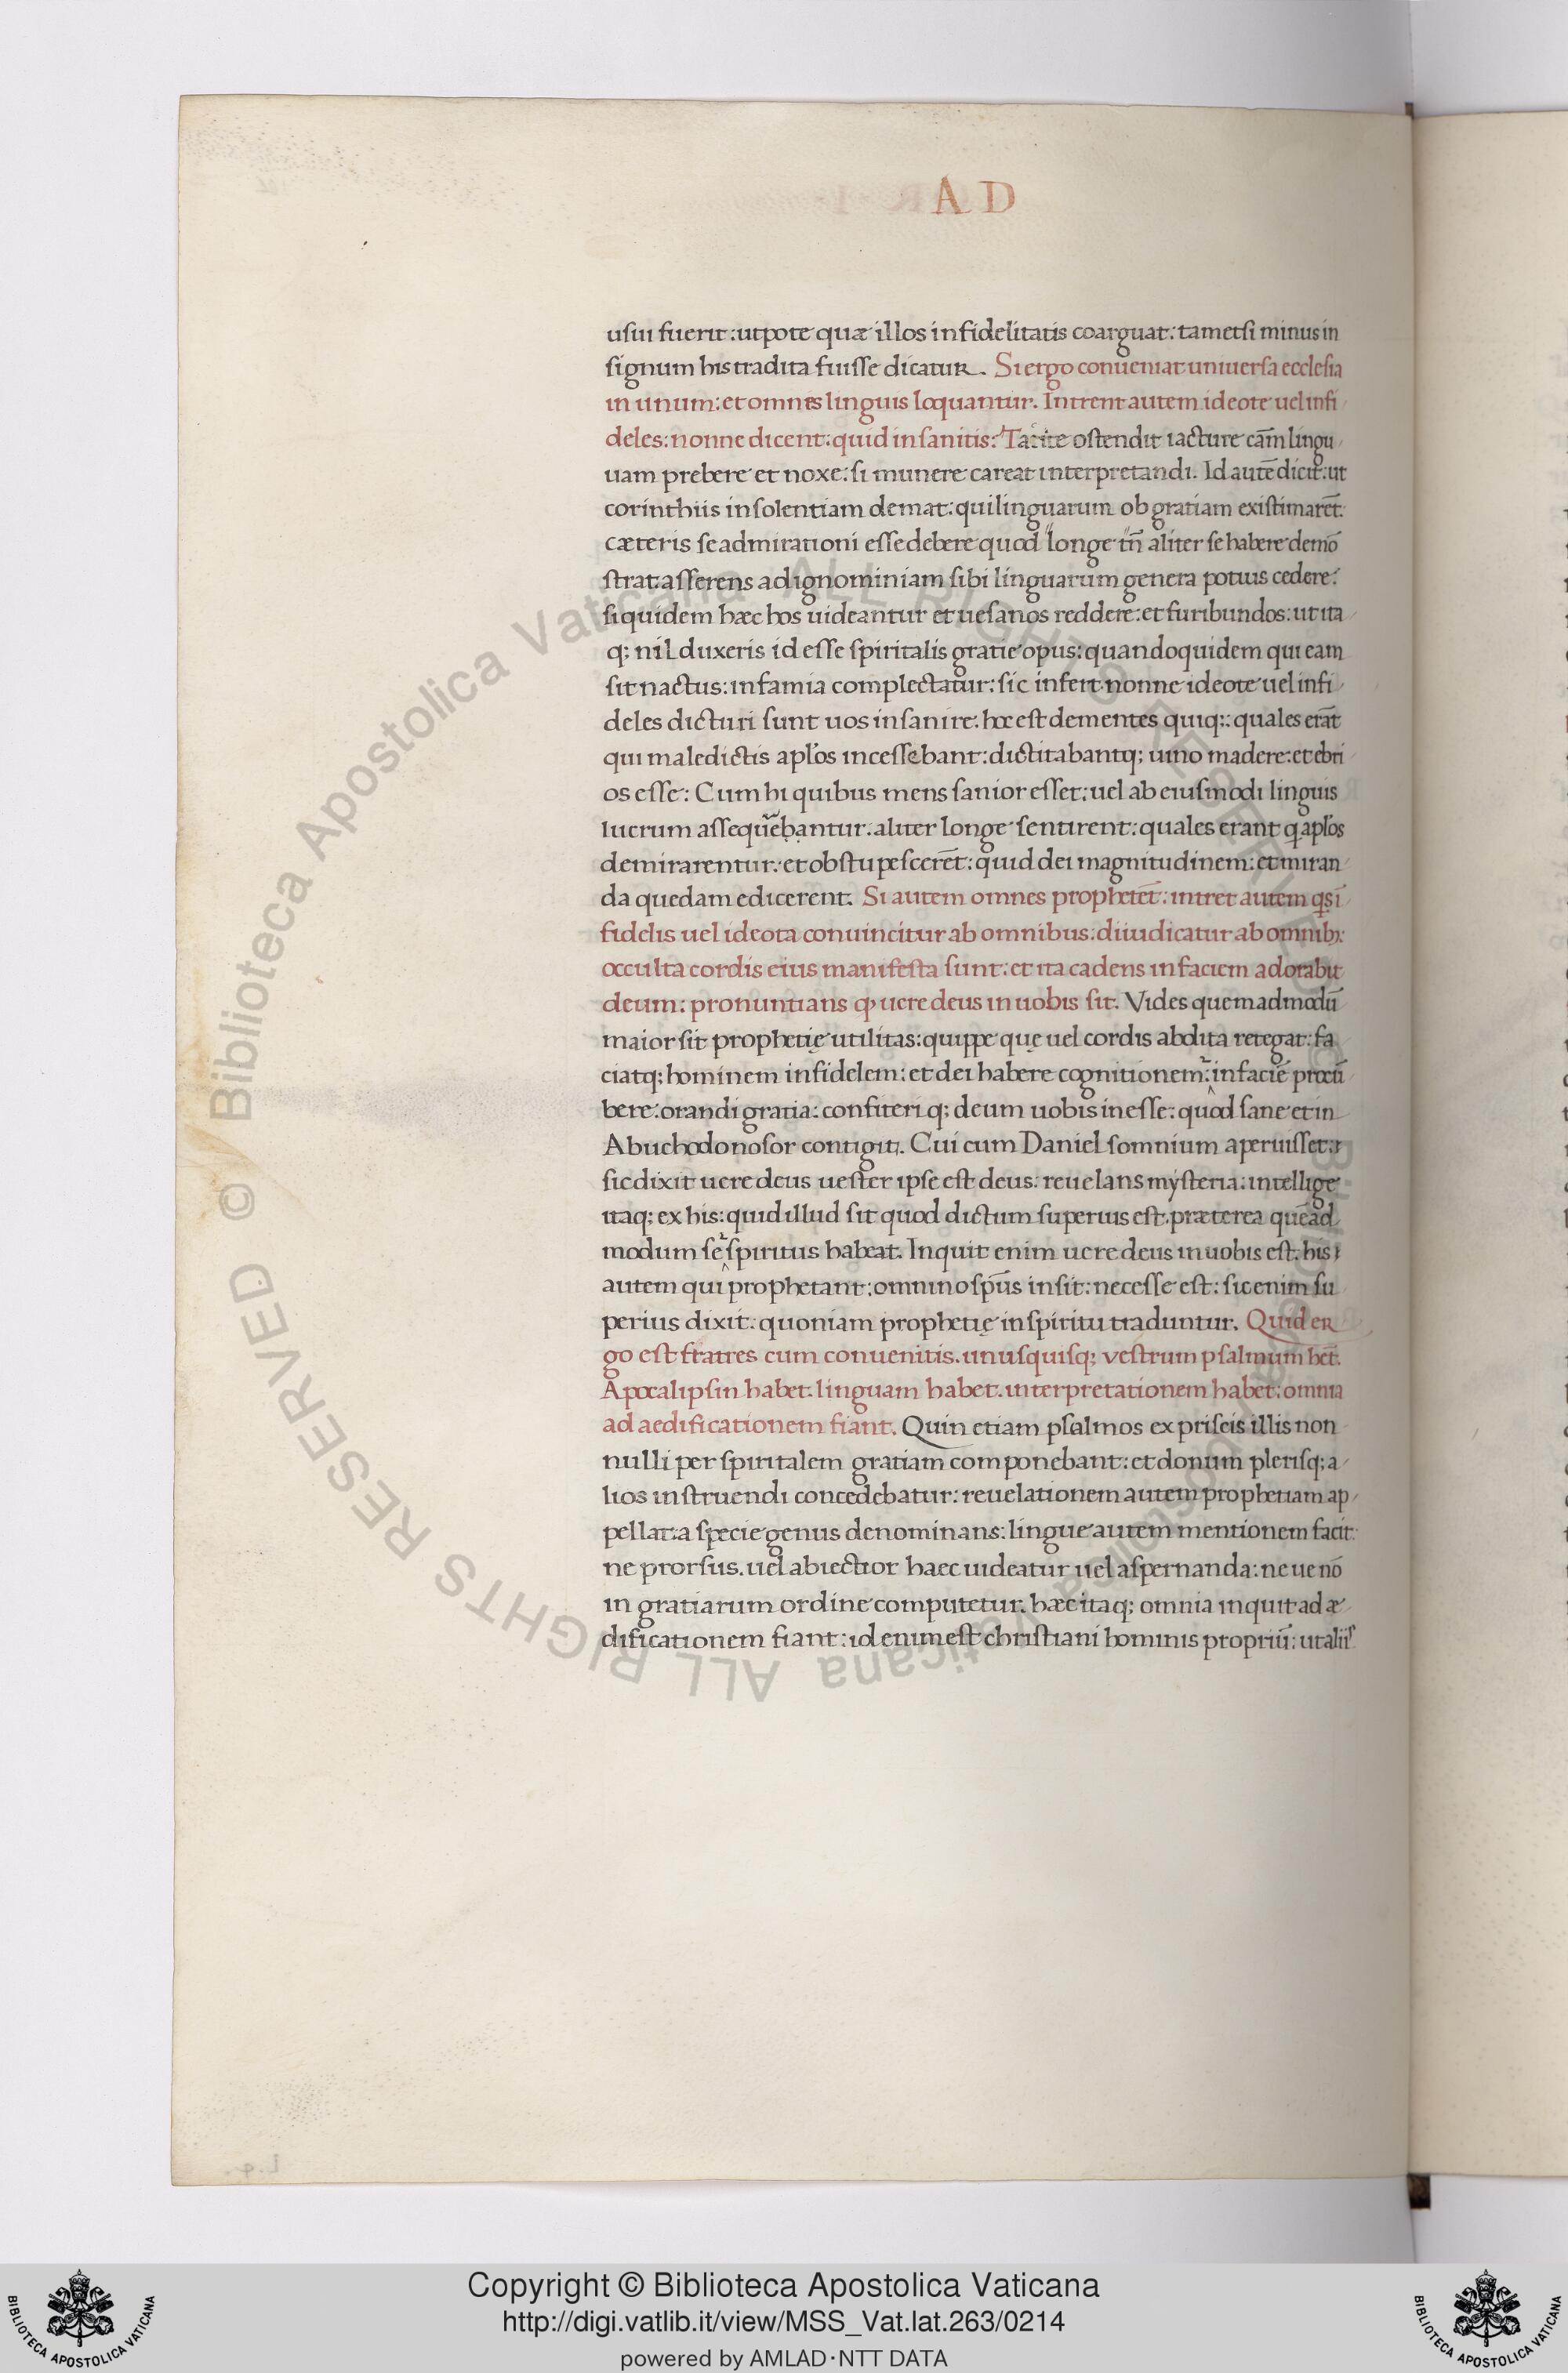 AD
usui fuerit: utpote quæ illos infidelitatis coarguat: tametsi minus in
signum his tradita fuisse dicatur. Si ergo conueniat uniuersa ecclesia
in unum: et omnes linguis loquantur. Intrent autem ideote uel infi
deles: nonne dicent: quid insanitis: Tacite ostendit iacture cam̄ lingu
uam prebere et noxe: si munere careat interpretandi. Id autē dicit: ut
corinthiis insolentiam demat: qui linguarum ob gratiam existimarēt:
cæteris se admirationi esse debere quod longe tn̄ aliter se habere demō
strat: asserens ad ignominiam sibi linguarum genera potius cedere:
siquidem hæc hos uideantur et uesanos reddere: et furibundos: ut ita
q; nil duxeris id esse spiritalis gratie opus: quandoquidem qui eam
sit nactus: infamia complectatur: sic infert nonne ideote uel infi
deles dicturi sunt uos insanire: hoc est dementes quiq;: quales erāt
qui maledictis apl'os incessebant: dictitabantq; uino madere: et ebri
os esse: Cum hi quibus mens sanior esset: uel ab eiusmodi linguis
lucrum assequebantur: aliter longe sentirent: quales erant q apl'os
demirarentur: et obstupescerēt: quid dei magnitudinem: et miran
da quedam edicerent. Si autem omnes prophetēt: intret autem qs ī
fidelis uel ideota conuincitur ab omnibus: diiudicatur ab omnib;:
occulta cordis eius manifesta sunt: et ita cadens in faciem adorabit
deum: pronuntians ꝙ uere deus in uobis sit. Vides quemadmodū
maior sit prophetię utilitas: quippe quę uel cordis abdita retegat: fa
ciatq; hominem infidelem: et dei habere cognitionem: in faciē procū
bere: orandi gratia: confiteri q; deum uobis inesse: quod sane et in
Abuchodonosor contigit. Cui cum Daniel somnium aperuisset:
sic dixit uere deus uester ipse est deus: reuelans mysteria: intellige
itaq; ex his: quid illud sit quod dictum superius est. præterea quēad
modum se spiritus habeat. Inquit enim uere deus in uobis est. his
autem qui prophetant: omnino spūs insit: necesse est: sic enim su
perius dixit: quoniam prophetię in spiritu traduntur. Quid er
go est fratres cum conuenitis. unusquisq; vestrum psalmum hēt.
Apocalipsin habet. linguam habet. interpretationem habet: omnia
ad aedificationem fiant. Quin etiam psalmos ex priscis illis non
nulli per spiritalem gratiam componebant: et donum plerisq; a
lios instruendi concedebatur: reuelationem autem prophetiam ap
pellat: a specie genus denominans: lingue autem mentionem facit:
ne prorsus. uel abiectior haec uideatur uel aspernanda: neue nō
in gratiarum ordine computetur. hæc itaq; omnia inquit ad æ
dificationem fiant: id enim est christiani hominis propriū: ut aliis
Copyright © Biblioteca Apostolica Vaticana
http://digi.vatlib.it/view/MSS_Vat.lat.263/0214
powered by AMLAD·NTT DATA
BIBLIOTECA APOSTOLICA VATICANA
BIBLIOTECA APOSTOLICA VATICANA
© Biblioteca Apostolica Vaticana ALL RIGHTS RESERVED © Biblioteca Apostolica Vaticana ALL RIGHTS RESERVED